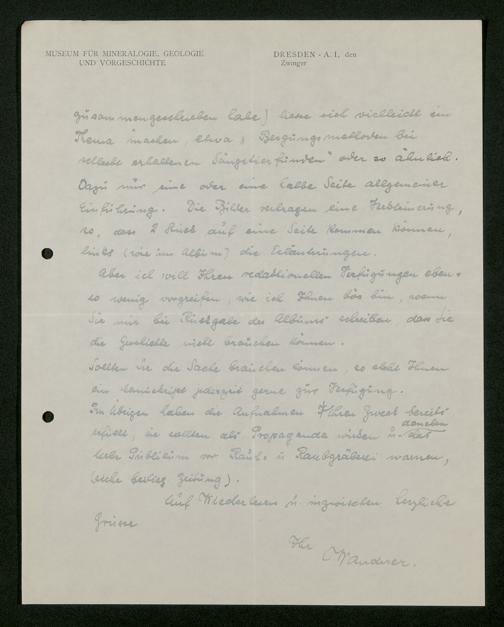 MUSEUM FÜR MINERALOGIE, GEOLOGIE
UND VORGESCHICHTE
DRESDEN - A. 1, den
Zwinger
zusammengeschrieben habe) liesse sich vielleicht ein
Thema machen, etwa „Bergungsmethoden bei
schlecht erhaltenen Säugetierfunden" oder so ähnlich.
Dazu nur eine oder eine halbe Seite allgemeiner
Einführung. Die Bilder vertragen eine Verkleinerung,
so, dass 2 Stück auf eine Seite kommen können,
links (wie im Album) die Erläuterungen.
Aber ich will Ihren redaktionellen Verfügungen eben-
so wenig vorgreifen, wie ich Ihnen bös bin, wenn
Sie mir bei Rückgabe des Albums schreiben, dass Sie
die Geschichte nicht brauchen können.
Sollten Sie die Sache brauchen können, so steht Ihnen
ein Manuskript jederzeit gerne zur Verfügung.
Im übrigen haben die Aufnahmen Ihren Zweck bereits
erfüllt, sie sollten als Propaganda wirken u. daneben das
liebe Publikum vor Raub- u. Raubgräberei warnen,
(siehe beilieg. Zeitung).
Auf Wiedersehen u. inzwischen herzliche
Grüsse
Ihr
Wanderer.